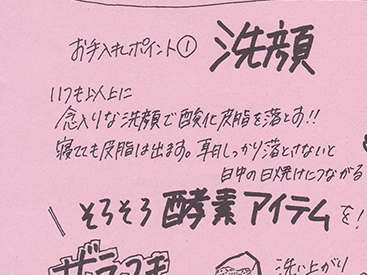 お手入れポイント① 洗顔
いつも以上に
念入りな洗顔で酸化皮脂を落とす!!
寝てても皮脂は出ます。毎日しっかり落とさないと
日中の日焼けにつながる
そろそろ酵素アイテムを!
ザラつき
洗い上がり